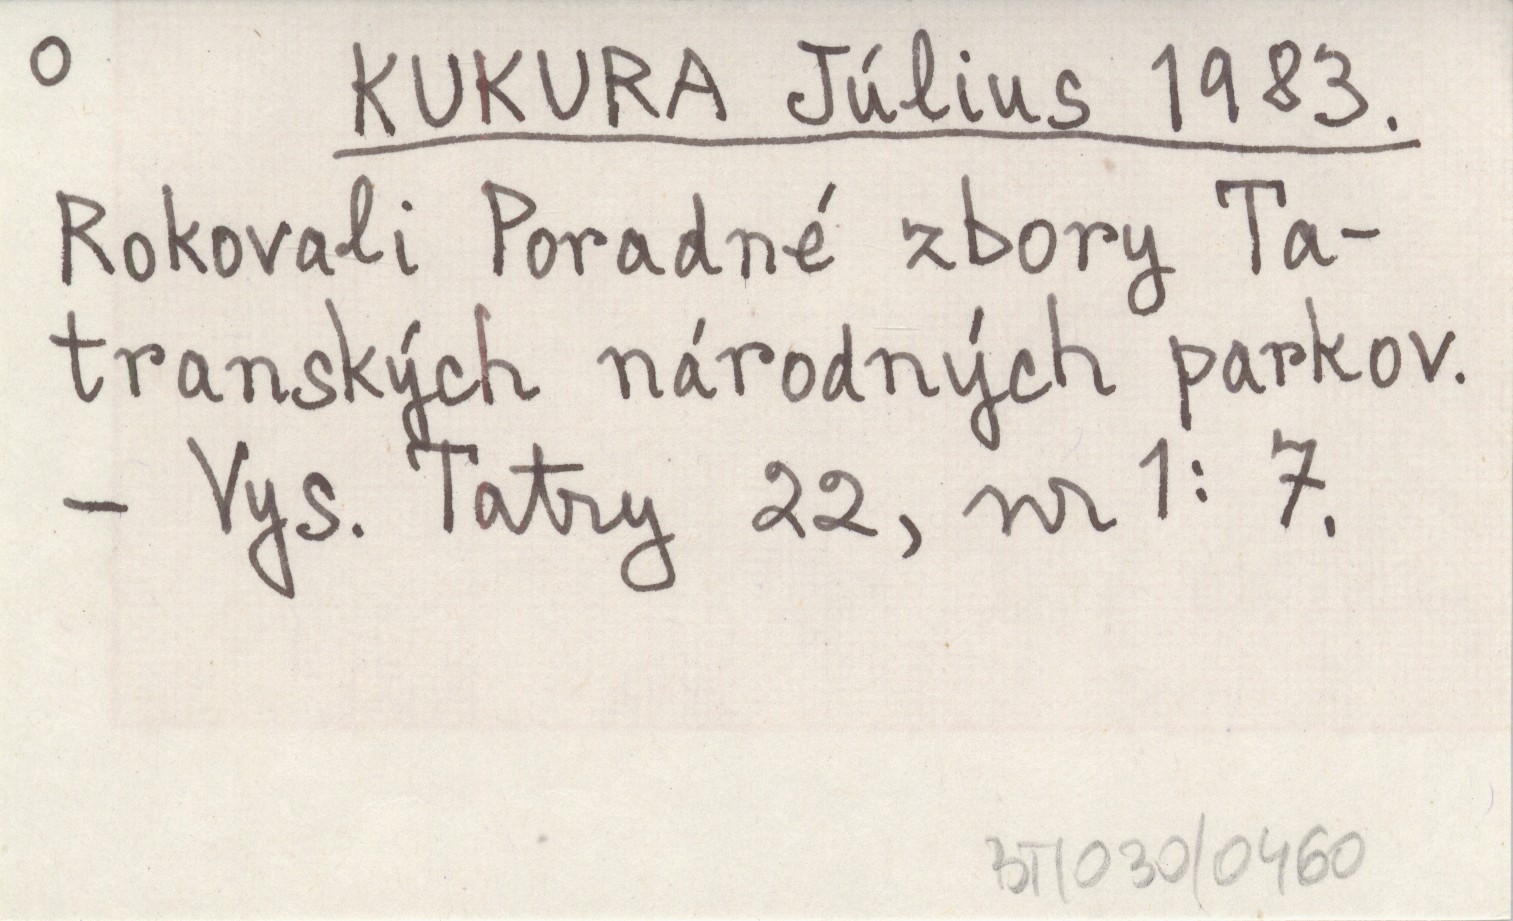 o
KUKURA Július 1983.
Rokovali Poradné zbory Ta-
tranských národných parkov.
- Vys. Tatry 22, nr 1: 7.
BT/030/0460